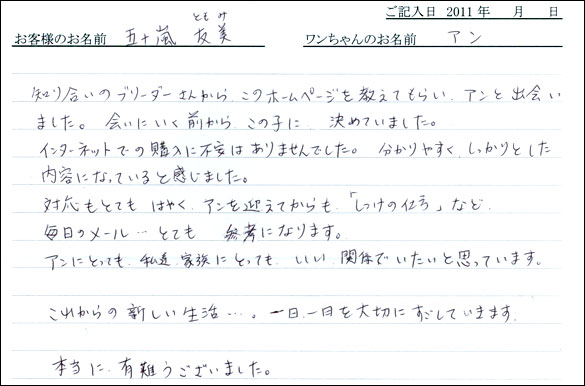 ご記入日 2011 年 月 日
お客様のお名前 五十嵐 友美 ともみ ワンちゃんのお名前 アン
知り合いのブリーダーさんから、このホームページを教えてもらい、アンと出会い
ました。会いにいく前から、この子に 決めていました。
インターネットでの購入に不安はありませんでした。分かりやすく、しっかりとした
内容になっていると感じました。
対応もとても はやく、アンを迎えてからも、「しつけの」など、
毎日のメール… とても 参考になります。
アンにとっても、私達、家族にとっても、いい、関係でいたいと思っています。
これからの新しい生活…。一日、一日を大切にすごしていきます。
本当に、有難うございました。